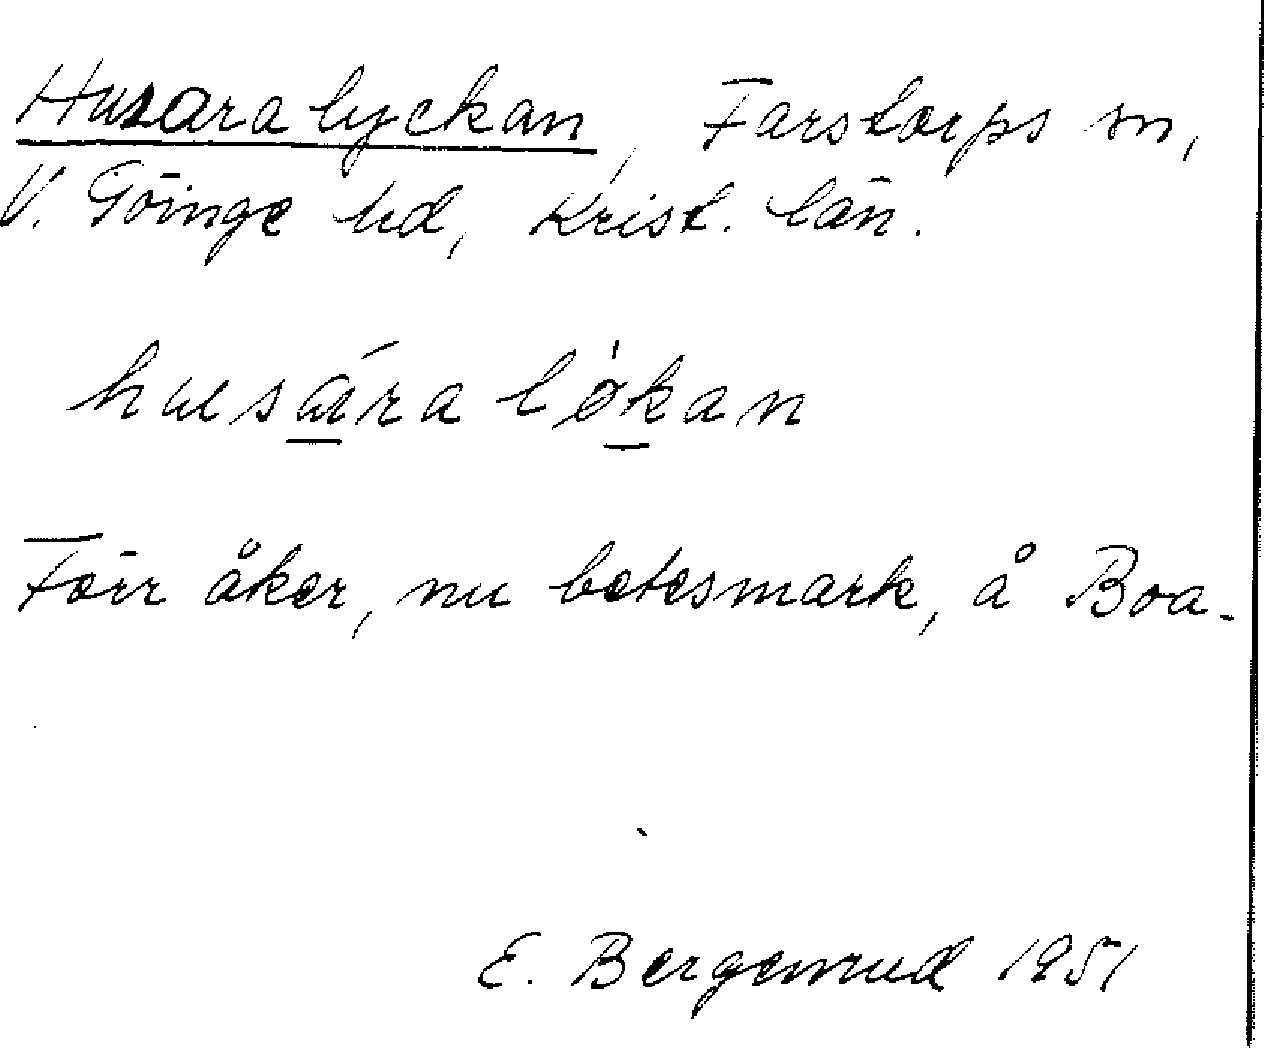 Husaralyckan, Farstorps sn,
V. Göinge hd, Krist. län.
husára lø̀kan
Förr åker, nu betesmark, å Boa-
E. Bergenrud 1951